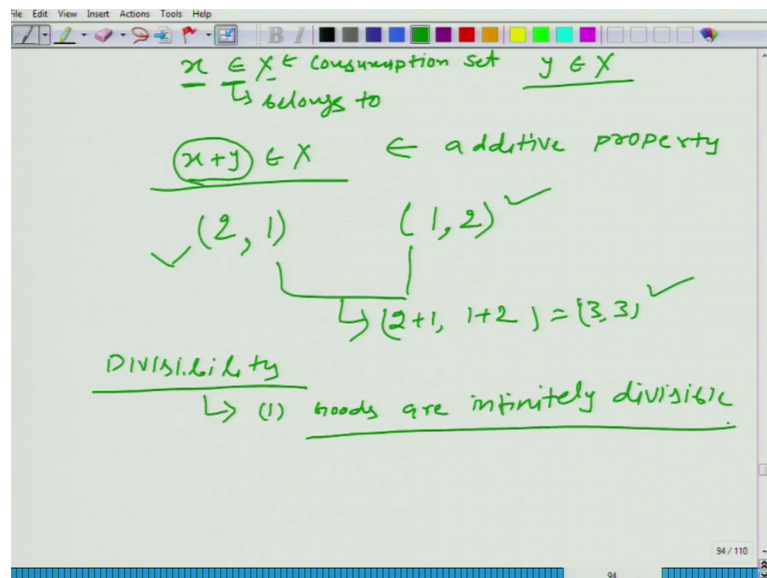 File Edit View Insert Actions Tools Help
x ∈ X ← Consumuption set y ∈ X
↳ belongs to
(x+y) ∈ X ← additive property
(2, 1) (1, 2)
↳ (2+1, 1+2) = (3,3)
Divisibility
↳ (1) Goods are infinitely divisible
94 / 110
94